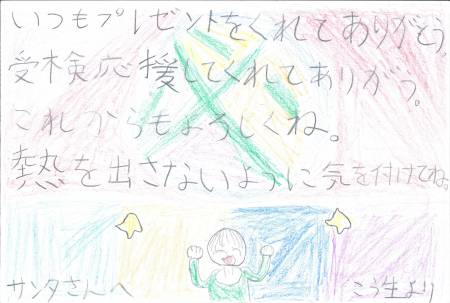 いつもプレゼントをくれてありがとう。
受検応援してくれてありがとう。
これからもよろしくね。
熱を出さないように気を付けてね。
サンタさんへ
こう生より